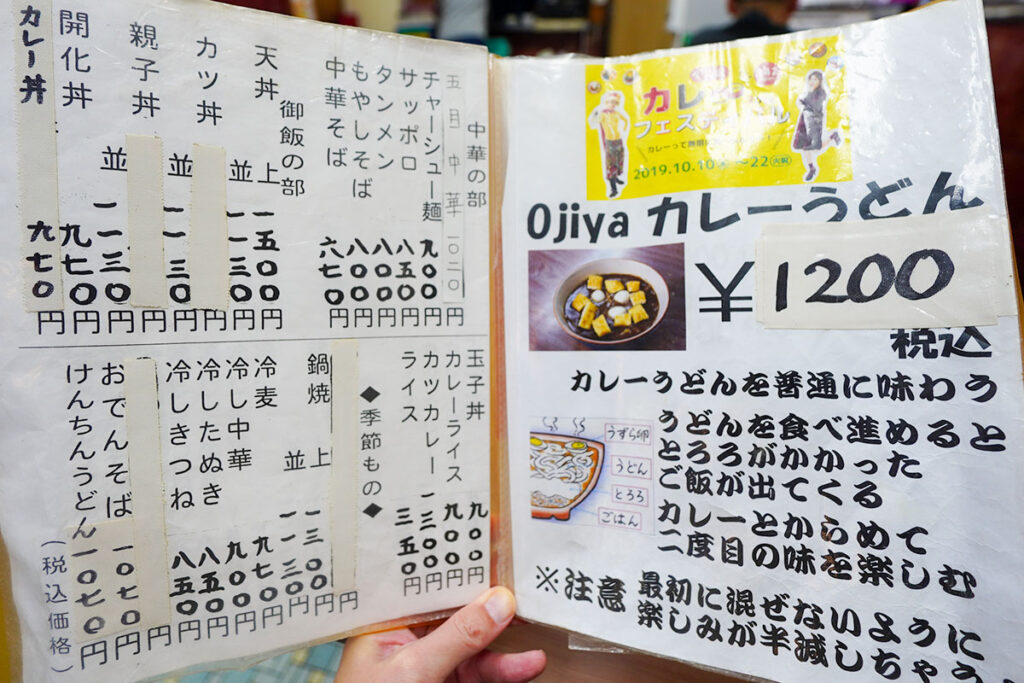 中華の部
五月中華 一〇二〇円
チャーシュー麺 九〇〇円
サッポロ 八五〇円
タンメン 八〇〇円
もやしそば 八〇〇円
中華そば 六七〇円
御飯の部
天丼 上 一五〇〇円
並 一一三〇円
カツ丼 円
並 一一三〇円
親子丼 円
並 一一三〇円
開化丼 九七〇円
カレー丼 九七〇円
玉子丼 九〇〇円
カレーライス 九〇〇円
カツカレー 一三〇〇円
ライス 三五〇円
◆季節もの◆
円
鍋焼 上 円
並 一一三〇円
冷麦 九七〇円
冷し中華 九〇〇円
冷したぬき 八五〇円
冷しきつね 八五〇円
円
おでんそば 一〇七〇円
けんちんうどん 一〇七〇円
(税込価格)
カレー
フェス
2019.10.10
22
Ojiya カレーうどん
¥1200
税込
カレーうどんを普通に味わう
うどんを食べ進めると
とろろがかかった
ご飯が出てくる
カレーとからめて
二度目の味を楽しむ
うずら卵
うどん
とろろ
ごはん
※注意 最初に混ぜないように
楽しみが半減しちゃう